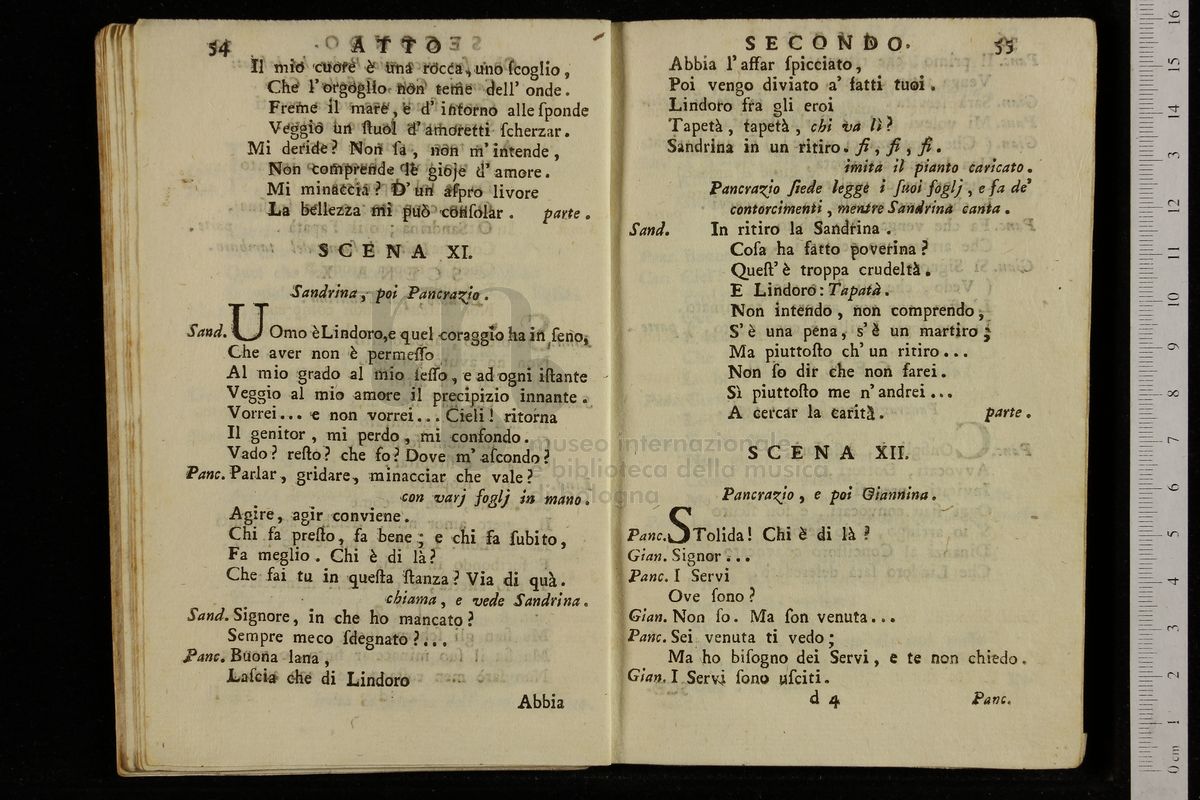 54 ATTO
Il mio cuore è una rocca, uno ſcoglio,
Che l'orgoglio non teme dell' onde.
Freme il mare, e d' intorno alle ſponde
Veggio un ſtuol d'amoretti ſcherzar.
Mi deride? Non ſa, non m'intende,
Non comprende le gioje d'amore.
Mi minaccia? D'un aſpro livore
La bellezza mi può conſolar. parte.
SCENA XI.
Sandrina, poi Pancrazio.
Sand. UOmo è Lindoro, e quel coraggio ha in ſeno,
Che aver non è permeſſo
Al mio grado al mio ſeſſo, e ad ogni iſtante
Veggio al mio amore il precipizio innante.
Vorrei... e non vorrei... Cieli! ritorna
Il genitor, mi perdo, mi confondo.
Vado? reſto? che fo? Dove m' aſcondo?
Panc. Parlar, gridare, minacciar che vale?
con varj foglj in mano.
Agire, agir conviene.
Chi fa preſto, fa bene; e chi fa ſubito,
Fa meglio. Chi è di là?
Che fai tu in queſta ſtanza? Via di quà.
chiama, e vede Sandrina.
Sand. Signore, in che ho mancato?
Sempre meco ſdegnato?...
Panc. Buona lana,
Laſcia che di Lindoro
Abbia
SECONDO. 55
Abbia l'affar ſpicciato,
Poi vengo diviato a' fatti tuoi.
Lindoro fra gli eroi
Tapetà, tapetà, chi va lì?
Sandrina in un ritiro. fi, fi, fi.
imita il pianto caricato.
Pancrazio ſiede legge i ſuoi foglj, e fa de'
contorcimenti, mentre Sandrina canta.
Sand. In ritiro la Sandrina.
Coſa ha fatto poverina?
Queſt' è troppa crudeltà.
E Lindoro: Tapatà.
Non intendo, non comprendo,
S' è una pena, s' è un martiro;
Ma piuttoſto ch' un ritiro...
Non ſo dir che non farei.
Sì piuttoſto me n'andrei...
A cercar la carità. parte.
SCENA XII.
Pancrazio, e poi Giannina.
Panc. STolida! Chi è di là?
Gian. Signor...
Panc. I Servi
Ove ſono?
Gian. Non ſo. Ma ſon venuta...
Panc. Sei venuta ti vedo;
Ma ho biſogno dei Servi, e te non chiedo.
Gian. I Servi ſono uſciti.
d 4 Panc.
museo internazionale
e biblioteca della musica
di bologna
0 cm 1 2 3 4 5 6 7 8 9 10 11 12 13 14 15 16